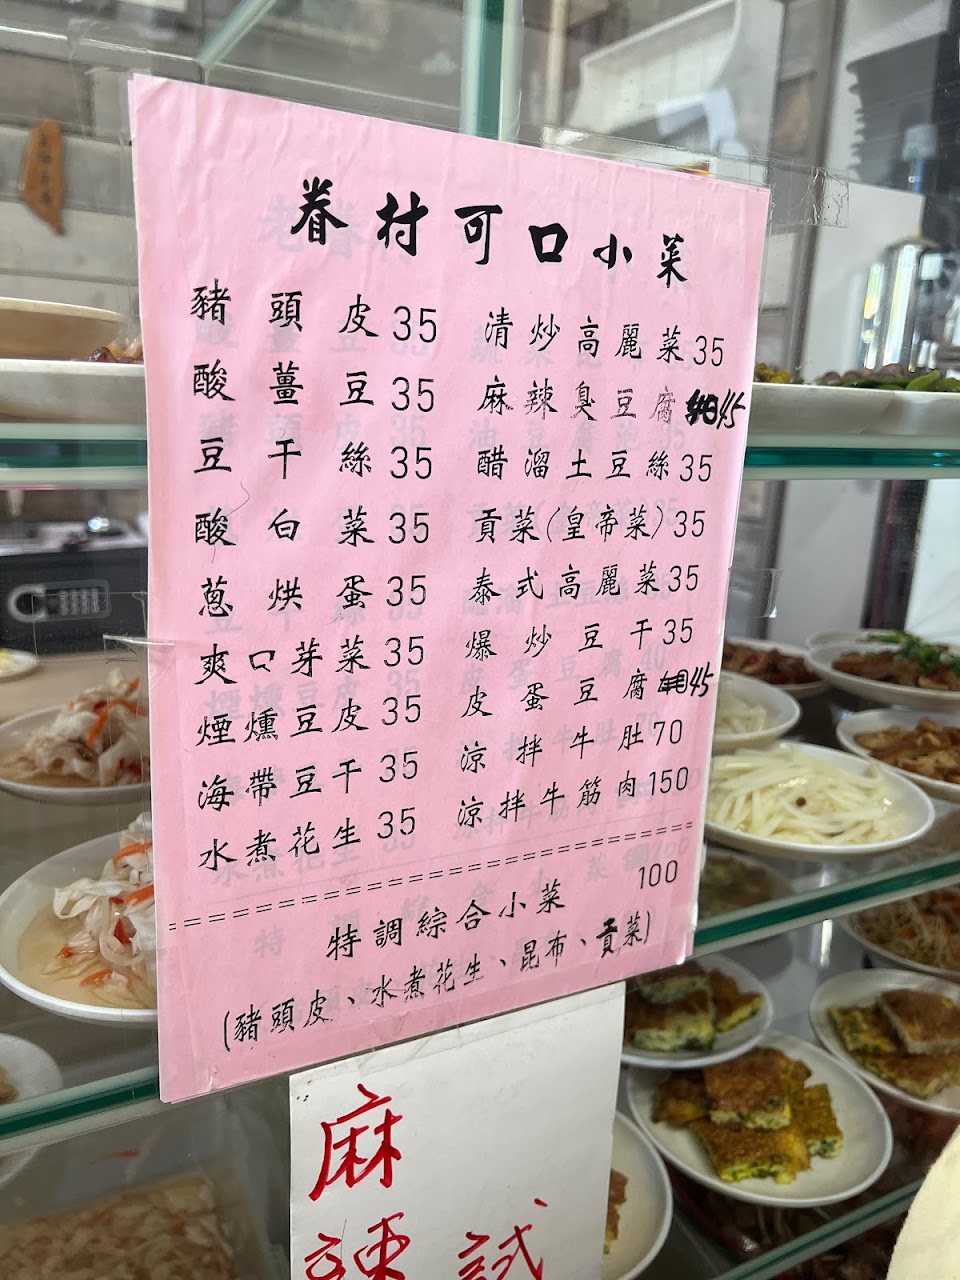 眷村可口小菜
豬頭皮35
酸薑豆35
豆干絲35
酸白菜35
蔥烘蛋35
爽口芽菜35
煙燻豆皮35
海帶豆干35
水煮花生35
清炒高麗菜35
麻辣臭豆腐45
醋溜土豆絲35
貢菜(皇帝菜)35
泰式高麗菜35
爆炒豆干35
皮蛋豆腐45
涼拌牛肚70
涼拌牛筋肉150
特調綜合小菜 100
(豬頭皮、水煮花生、昆布、貢菜)
麻
辣 試